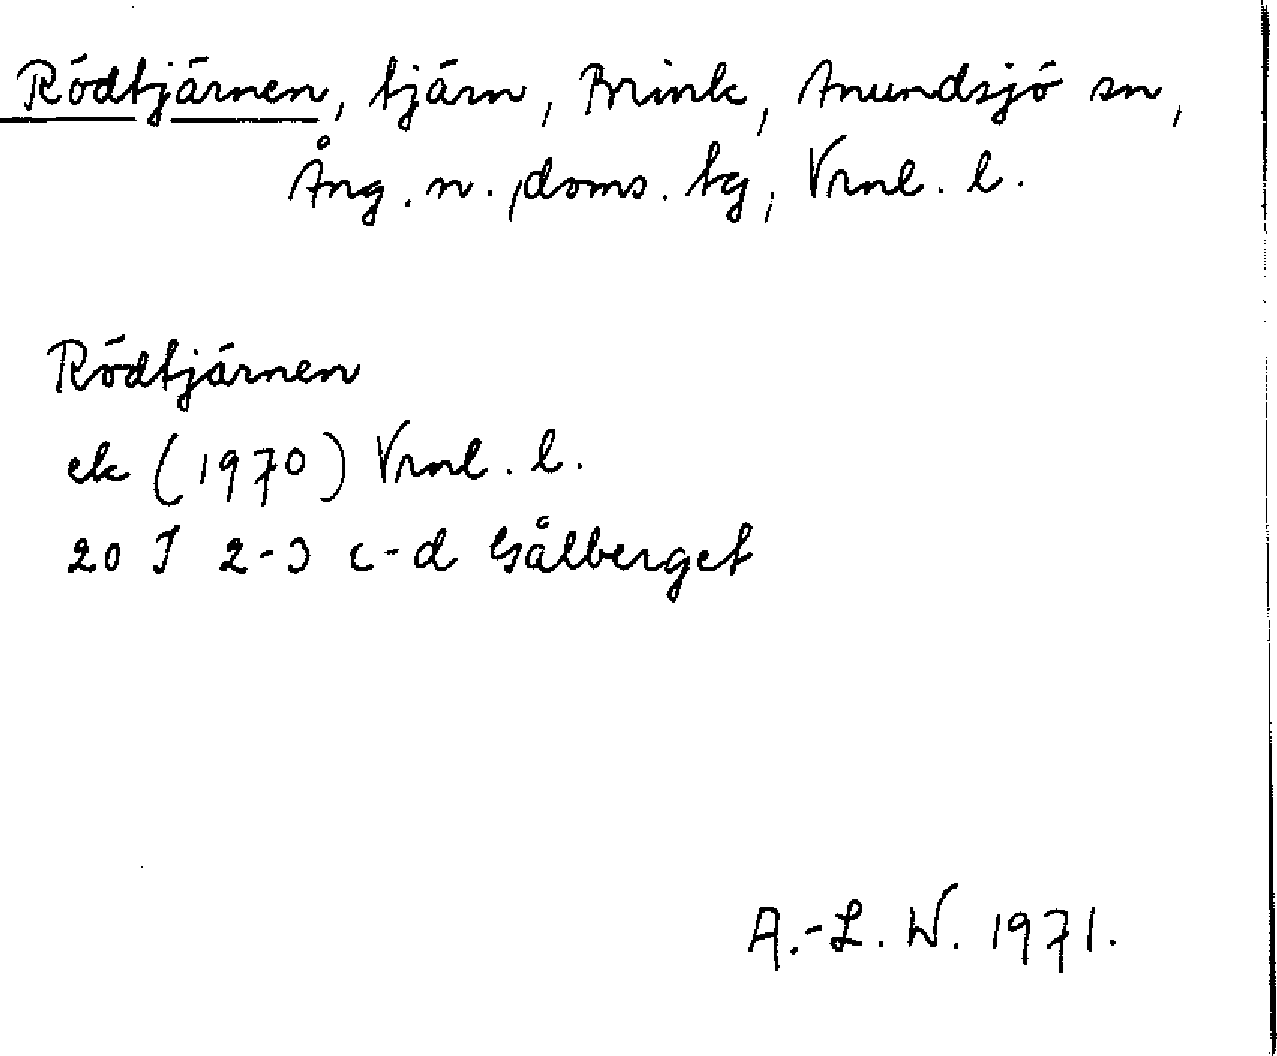 Rödtjärnen, tjärn, Brink, Anundsjö sn,
Ång. n. doms. tg, Vrnl. l.
Rödtjärnen
ek (1970) Vrnl. l.
20 J 2-3 c-d Gålberget
A.-L. W. 1971.